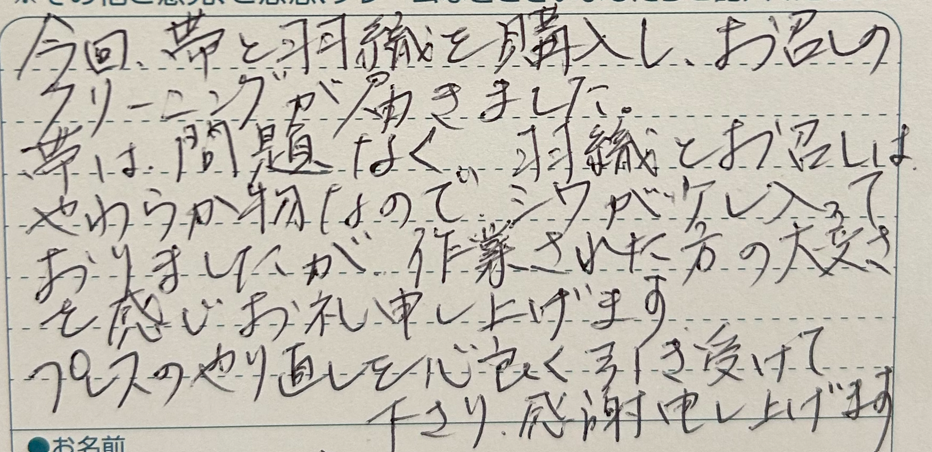 今回、帯と羽織を購入し、お召しの
クリーニングが届きました。
帯は、問題なく、羽織とお召しは
やわらか物なので、シワが 入って
おりましたが、作業された方の大変さ
を感じお礼申し上げます
プレスのやり直しを心良く引き受けて
下さり、感謝申し上げます
●お名前